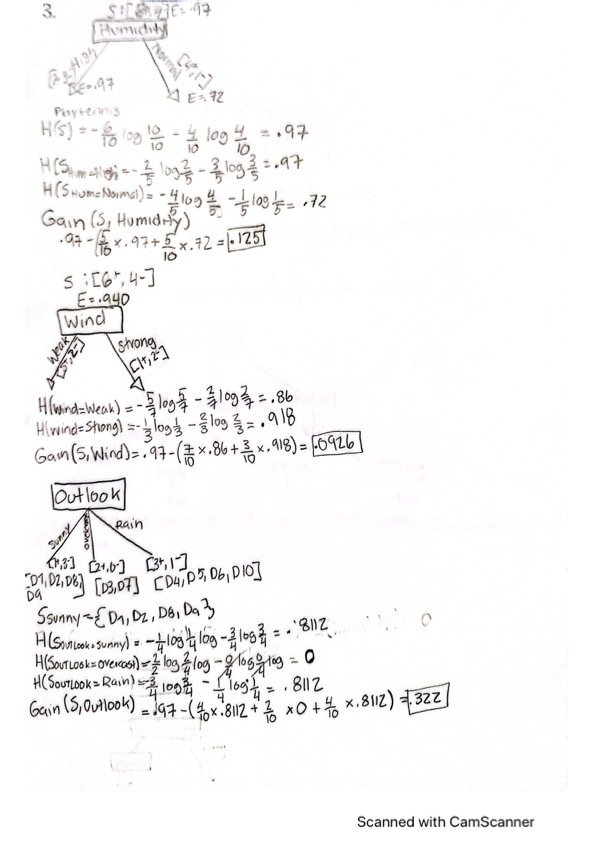 3.
S:[6+,4-]E=.97
Humidity
High
Normal
[2,3-]
[4+,1-]
E=.97
E=.72
Playtennis
H(S) = -6/10 log 10/10 - 4/10 log 4/10 = .97
H(S Hum=High) = -2/5 log 2/5 - 3/5 log 3/5 = .97
H(S Hum=Normal) = -4/5 log 4/5 - 1/5 log 1/5 = .72
Gain (S, Humidity)
.97 - (5/10 x .97 + 5/10 x .72 = .125
S :[6+, 4-]
E=.940
Wind
Weak
[5+,2-]
Strong
[1+,2-]
H(Wind=Weak) = -5/7 log 5/7 - 2/7 log 2/7 = .86
H(Wind=Strong) = -1/3 log 1/3 - 2/3 log 2/3 = .918
Gain (S, Wind) = .97 - (7/10 x .86 + 3/10 x .918) = .0926
Outlook
Sunny
Rain
[1+,3-] [2+,0-] [3+,1-]
[D1, D2, D8] [D3, D7] [D4, D5, D6, D10]
D9
Ssunny = {D1, D2, D8, D9}
H(S OUTLOOK=Sunny) = -1/4 log 1/4 log - 3/4 log 3/4 = .8112
H(S OUTLOOK=Overcast) = -2/2 log 2/4 log - 0/4 log 0/4 log = 0
H(S OUTLOOK=Rain) = -3/4 log 3/4 - 1/4 log 1/4 = .8112
Gain (S, Outlook) = .97 - (4/10 x .8112 + 2/10 x 0 + 4/10 x .8112) = .322
Scanned with CamScanner